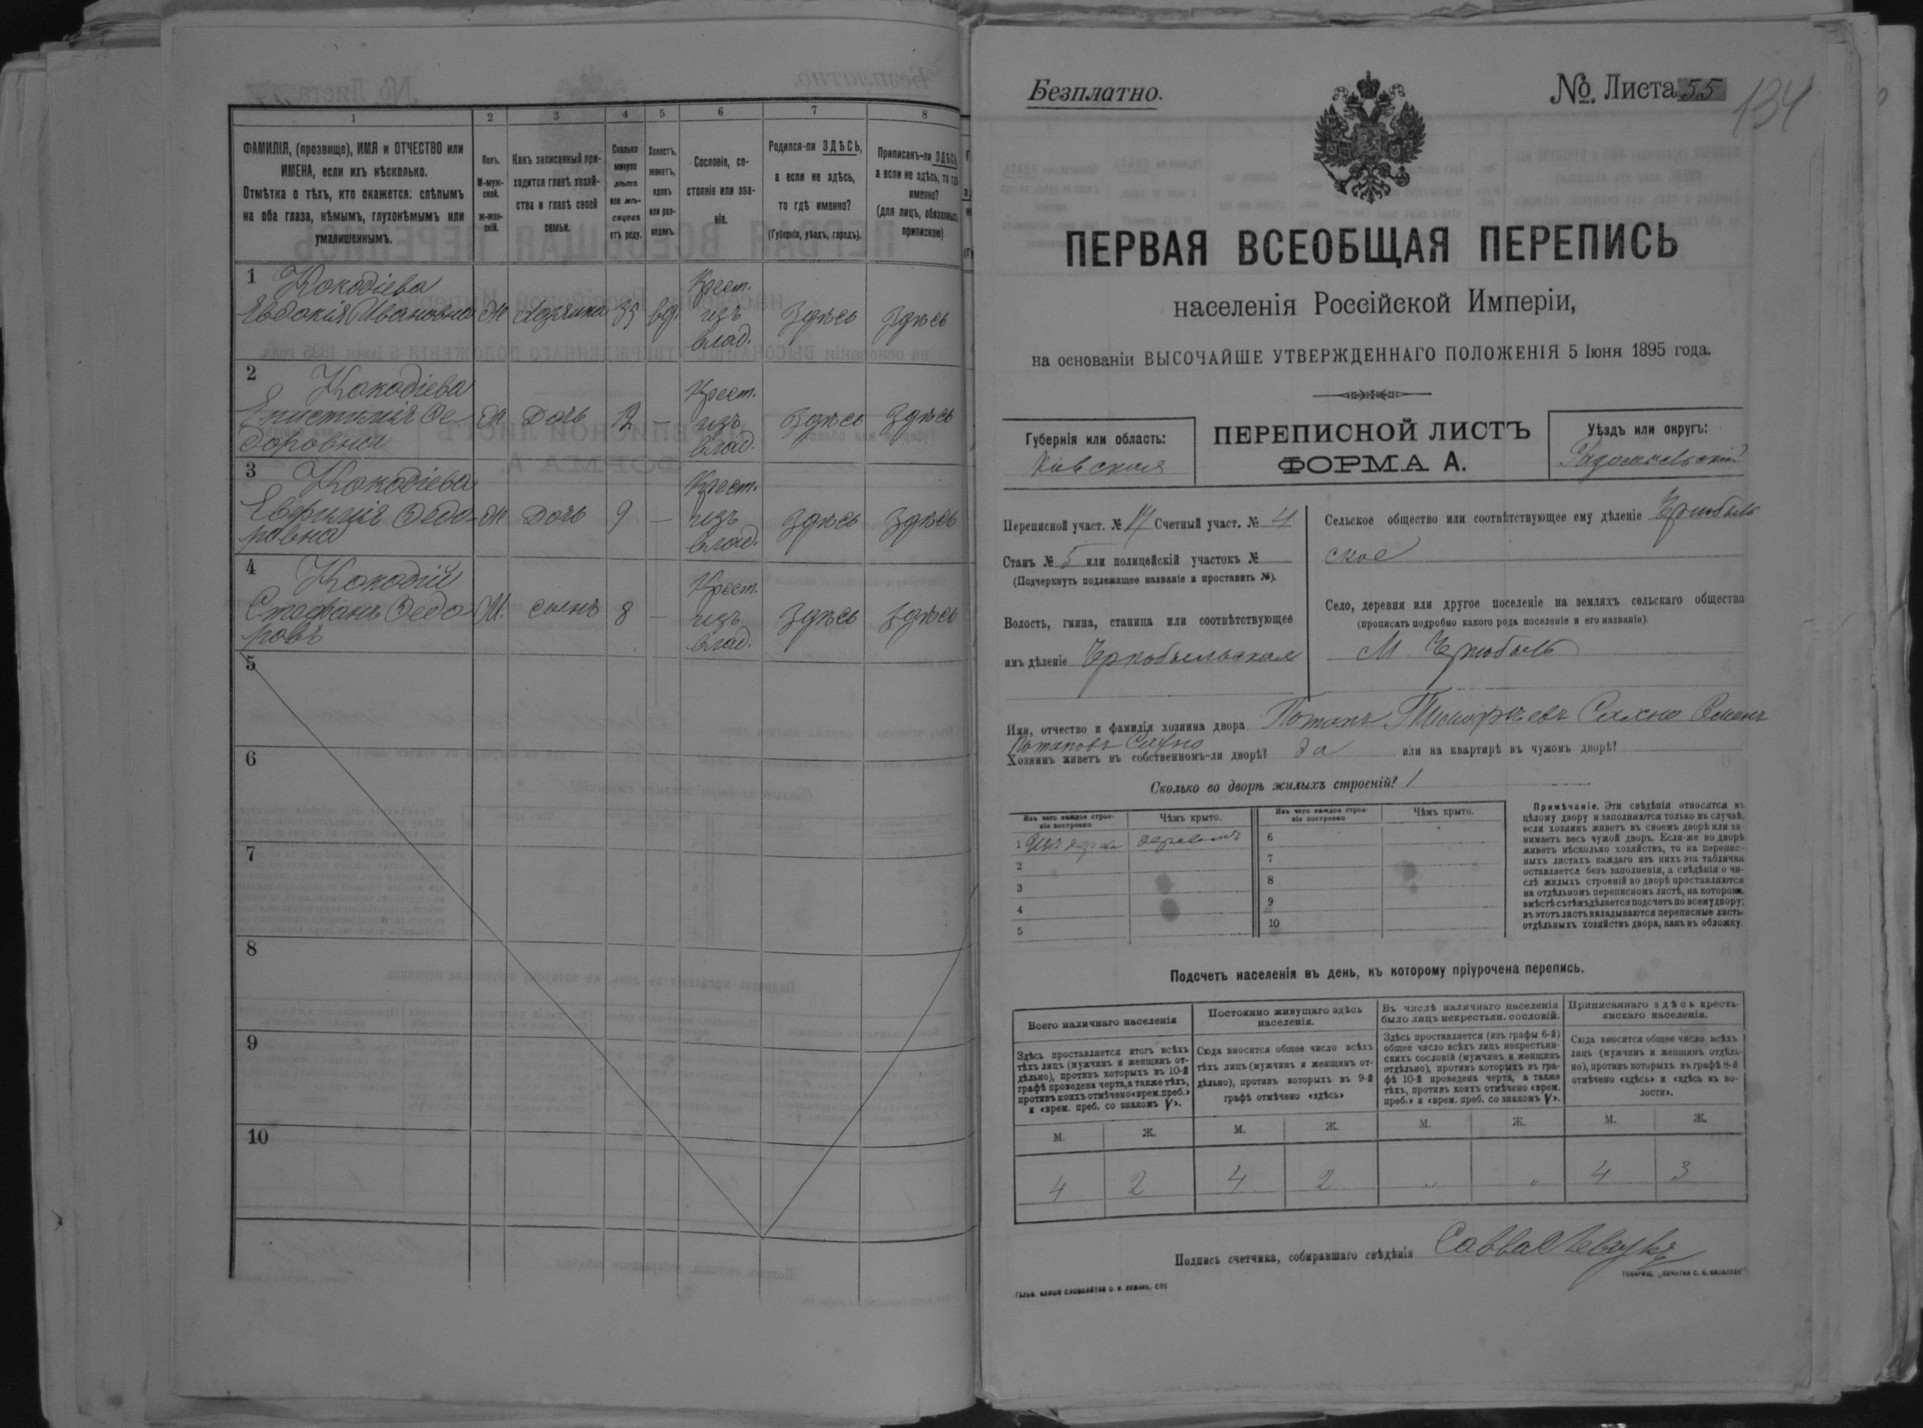 1 2 3 4 5 6 7 8
ФАМИЛІЯ, (прозвище), ИМЯ и ОТЧЕСТВО или
ИМЕНА, если ихъ нѣсколько.
Отмѣтка о тѣхъ, кто окажется: слѣпымъ
на оба глаза, нѣмымъ, глухонѣмымъ или
умалишеннымъ.
Полъ.
М-муж-
ской.
ж-жен-
скій.
Какъ записанный при-
ходится главѣ хозяй-
ства и главѣ своей
семьи.
Сколько
минуло
лѣтъ
или мѣ-
сяцевъ
отъ роду.
Холостъ,
женатъ,
вдовъ
или раз-
веденъ.
Сословіе, со-
стояніе или зва-
ніе.
Родился-ли ЗДѢСЬ,
а если не здѣсь,
то гдѣ именно?
(Губернія, уѣздъ, городъ).
Приписанъ-ли ЗДѢСЬ
а если не здѣсь, то гдѣ
именно?
(для лицъ, обязанныхъ
припискою)
1 Кокодіева
Евдокія Ивановна Ж Хозяйка 35 вд. Крест. изъ влад. Здѣсь Здѣсь
2 Кокодіева
Епистимія Ѳе-
доровна Ж Дочь 12 — Крест. изъ влад. Здѣсь Здѣсь
3 Кокодіева
Евфимія Ѳедо-
ровна Ж Дочь 9 — Крест. изъ влад. Здѣсь Здѣсь
4 Кокодій
Стефанъ Ѳедо-
ровъ М. сынъ 8 — Крест. изъ влад. Здѣсь Здѣсь
5
6
7
8
9
10
Безплатно.
№ Листа 55
134
ПЕРВАЯ ВСЕОБЩАЯ ПЕРЕПИСЬ
населенія Россійской Имперіи,
на основаніи ВЫСОЧАЙШЕ УТВЕРЖДЕННАГО ПОЛОЖЕНІЯ 5 Іюня 1895 года.
Губернія или область:
Кіевская
ПЕРЕПИСНОЙ ЛИСТЪ
ФОРМА А.
Уѣздъ или округъ:
Радомысльскій
Переписной участ. № 17 Счетный участ. № 4
Станъ № 5 или полицейскій участокъ №
(Подчеркнуть подлежащее названіе и проставить №).
Волость, гмина, станица или соотвѣтствующее
имъ дѣленіе Чернобыльская
Сельское общество или соотвѣтствующее ему дѣленіе Чернобыль
ское
Село, деревня или другое поселеніе на земляхъ сельскаго общества
(прописать подробно какого рода поселеніе и его названіе).
М Чернобыль
Имя, отчество и фамилія хозяина двора Потапъ Тимофѣевъ Сахно Семенъ
Потаповъ Сахно
Хозяинъ живетъ въ собственномъ-ли дворѣ? да или на квартирѣ въ чужомъ дворѣ?
Сколько во дворѣ жилыхъ строеній? 1
Изъ чего каждое строе-
ніе построено
Чѣмъ крыто.
Изъ чего каждое строе-
ніе построено
Чѣмъ крыто.
1 Изъ дерева деревомъ
2
3
4
5
6
7
8
9
10
Примѣчаніе. Эти свѣдѣнія относятся къ
цѣлому двору и заполняются только въ случаѣ,
если хозяинъ живетъ въ своемъ дворѣ или за-
нимаетъ весь чужой дворъ. Если-же во дворѣ
живетъ нѣсколько хозяйствъ, то на перепис-
ныхъ листахъ каждаго изъ нихъ эта табличка
оставляется безъ заполненія, а свѣдѣнія о чи-
слѣ жилыхъ строеній во дворѣ проставляются
на отдѣльномъ переписномъ листѣ, на которомъ
вмѣстѣ съ тѣмъ дѣлается подсчетъ по всему двору;
въ этотъ листъ вкладываются переписные листы
отдѣльныхъ хозяйствъ двора, какъ въ обложку.
Подсчетъ населенія въ день, къ которому пріурочена перепись.
Всего наличнаго населенія
Здѣсь проставляется итогъ всѣхъ
тѣхъ лицъ (мужчинъ и женщинъ от-
дѣльно), противъ которыхъ въ 10-й
графѣ проведена черта, а также тѣхъ,
противъ коихъ отмѣчено «врем. преб.»
и «врем. преб. со знакомъ V».
Постоянно живущаго здѣсь
населенія.
Сюда вносится общее число всѣхъ
тѣхъ лицъ (мужчинъ и женщинъ от-
дѣльно), противъ которыхъ въ 9-й
графѣ отмѣчено «здѣсь»
Въ числѣ наличнаго населенія
было лицъ некрестьян. сословій.
Здѣсь проставляется (изъ графы 6-й)
общее число всѣхъ лицъ некрестьян-
скихъ сословій (мужчинъ и женщинъ
отдѣльно), противъ которыхъ въ гра-
фѣ 10-й проведена черта, а также
тѣхъ, противъ коихъ отмѣчено «врем.
преб.» и «врем. преб. со знакомъ V».
Приписаннаго здѣсь кресть-
янскаго населенія.
Сюда вносится общее число всѣхъ
лицъ (мужчинъ и женщинъ отдѣль-
но), противъ которыхъ въ графѣ 8-й
отмѣчено «здѣсь» и «здѣсь въ во-
лости».
М. Ж. М. Ж. М. Ж. М. Ж.
4 2 4 2 „ „ 4 3
Подпись счетчика, собиравшаго свѣдѣнія Савва